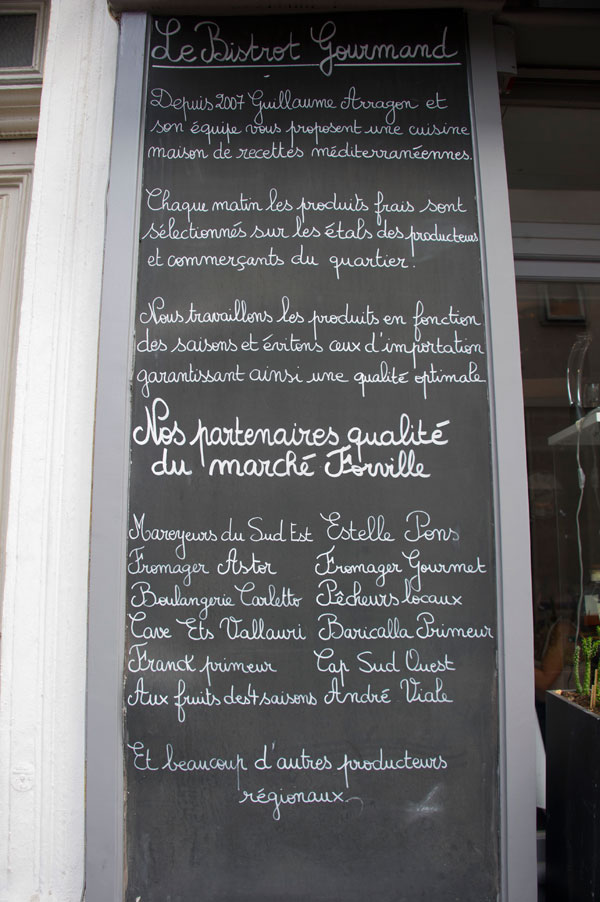 Le Bistrot Gourmand
Depuis 2007 Guillaume Arragon et
son équipe vous proposent une cuisine
maison de recettes méditerranéennes.
Chaque matin les produits frais sont
sélectionnés sur les étals des producteurs
et commerçants du quartier.
Nous travaillons les produits en fonction
des saisons et évitons ceux d'importation
garantissant ainsi une qualité optimale
Nos partenaires qualité
du marché Forville
Mareyeurs du Sud Est Estelle Pons
Fromager Astor Fromager Gourmet
Boulangerie Carletto Pêcheurs locaux
Cave Ets Vallauri Baricalla Primeur
Franck primeur Cap Sud Ouest
Aux fruits des 4 saisons André Viale
Et beaucoup d'autres producteurs
régionaux